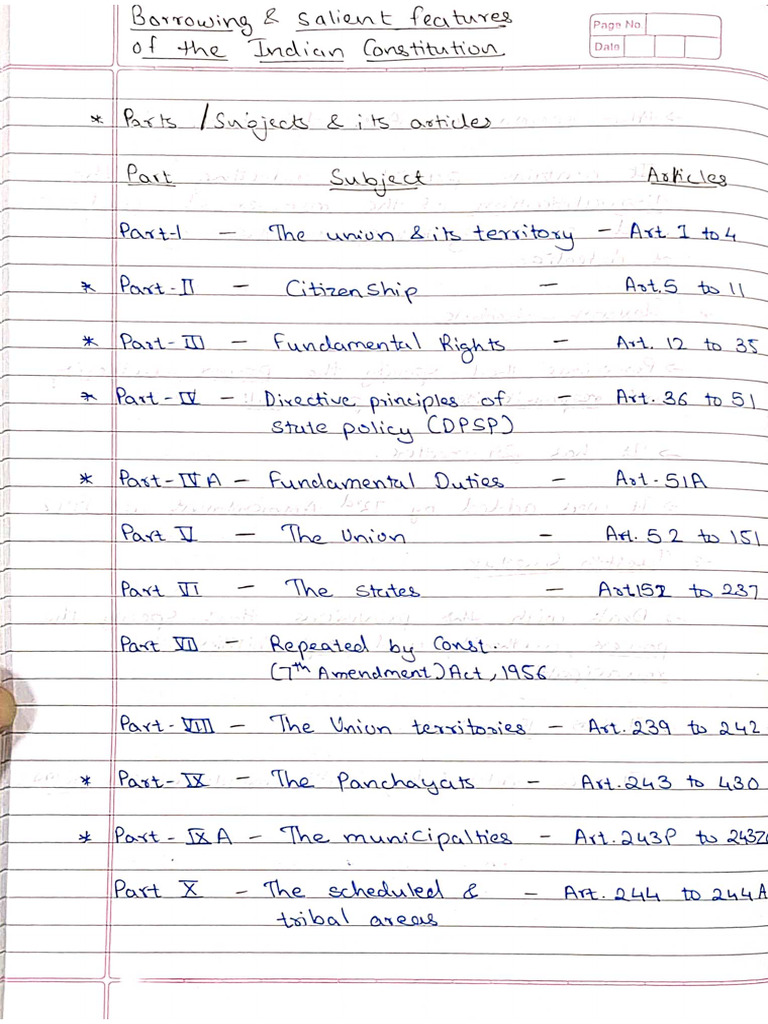 Borrowing & salient features
of the Indian Constitution
Page No.
Date
* Parts / Subjects & its articles
Part Subject Articles
Part-I - The union & its territory - Art 1 to 4
* Part-II - Citizenship - Art.5 to 11
* Part-III - Fundamental Rights - Art. 12 to 35
* Part-IV - Directive principles of - Art. 36 to 51
state policy (DPSP)
* Part-IVA - Fundamental Duties - Art-51A
Part V - The Union - Art. 52 to 151
Part VI - The states - Art152 to 237
Part VII - Repeated by Const.
(7th Amendment) Act, 1956
Part-VIII - The Union territories - Art.239 to 242
* Part-IX - The Panchayats - Art.243 to 430
* Part-IXA - The municipalties - Art.243P to 243Z
Part X - The scheduled & - Art. 244 to 244A
tribal areas